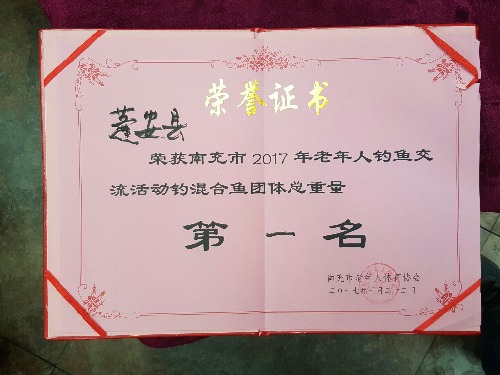 荣誉证书
蓬安县
荣获南充市2017年老年人钓鱼交
流活动钓混合鱼团体总重量
第一名
南充市老年人体育协会
二〇一七年 月二十二日